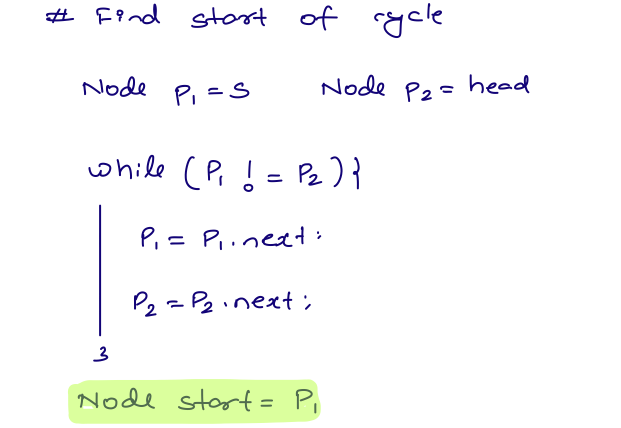 # Find start of cycle
Node P₁ = S Node P₂ = head
while (P₁ != P₂) {
P₁ = P₁.next;
P₂ = P₂.next;
}
Node start = P₁